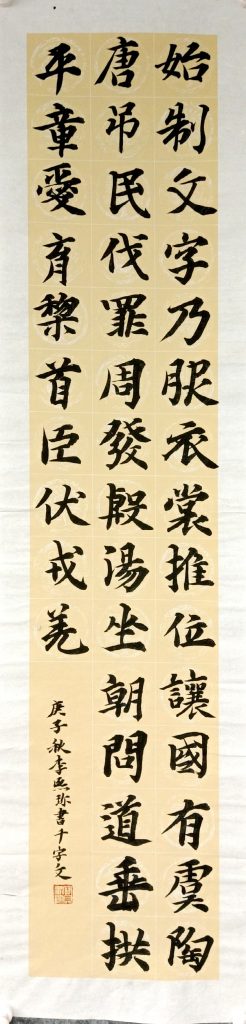 始制文字乃服衣裳推位讓國有虞陶
唐吊民伐罪周發殷湯坐朝問道垂拱
平章愛育黎首臣伏戎羌
庚子秋李熙珎書千字文